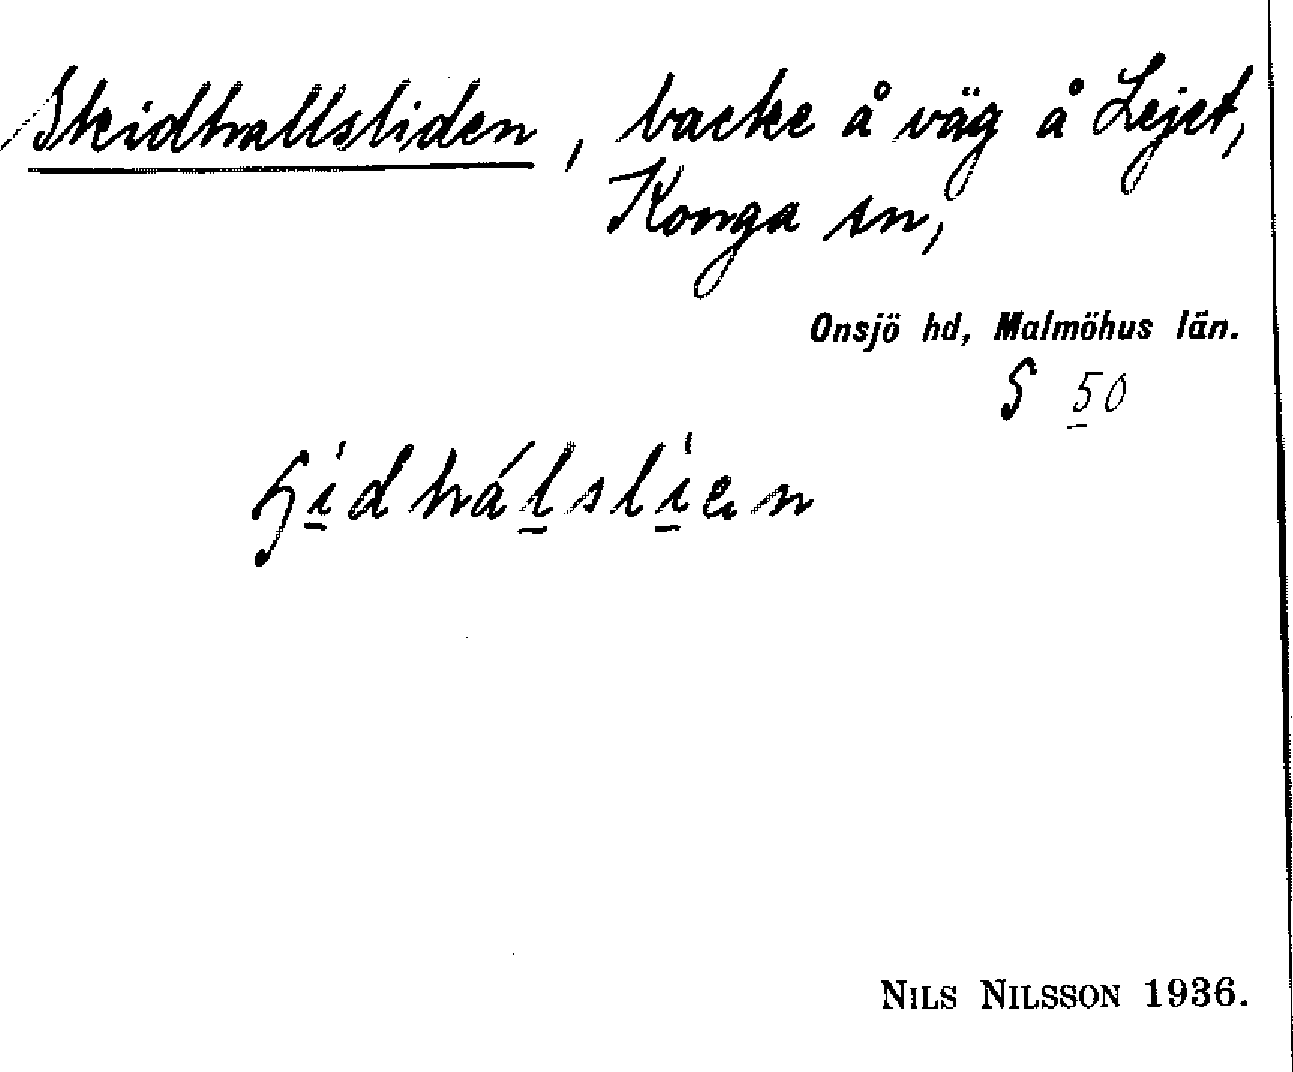 Skidhallsliden, backe å väg å Lejet,
Konga sn,
Onsjö hd, Malmöhus län.
S 50
NILS NILSSON 1936.